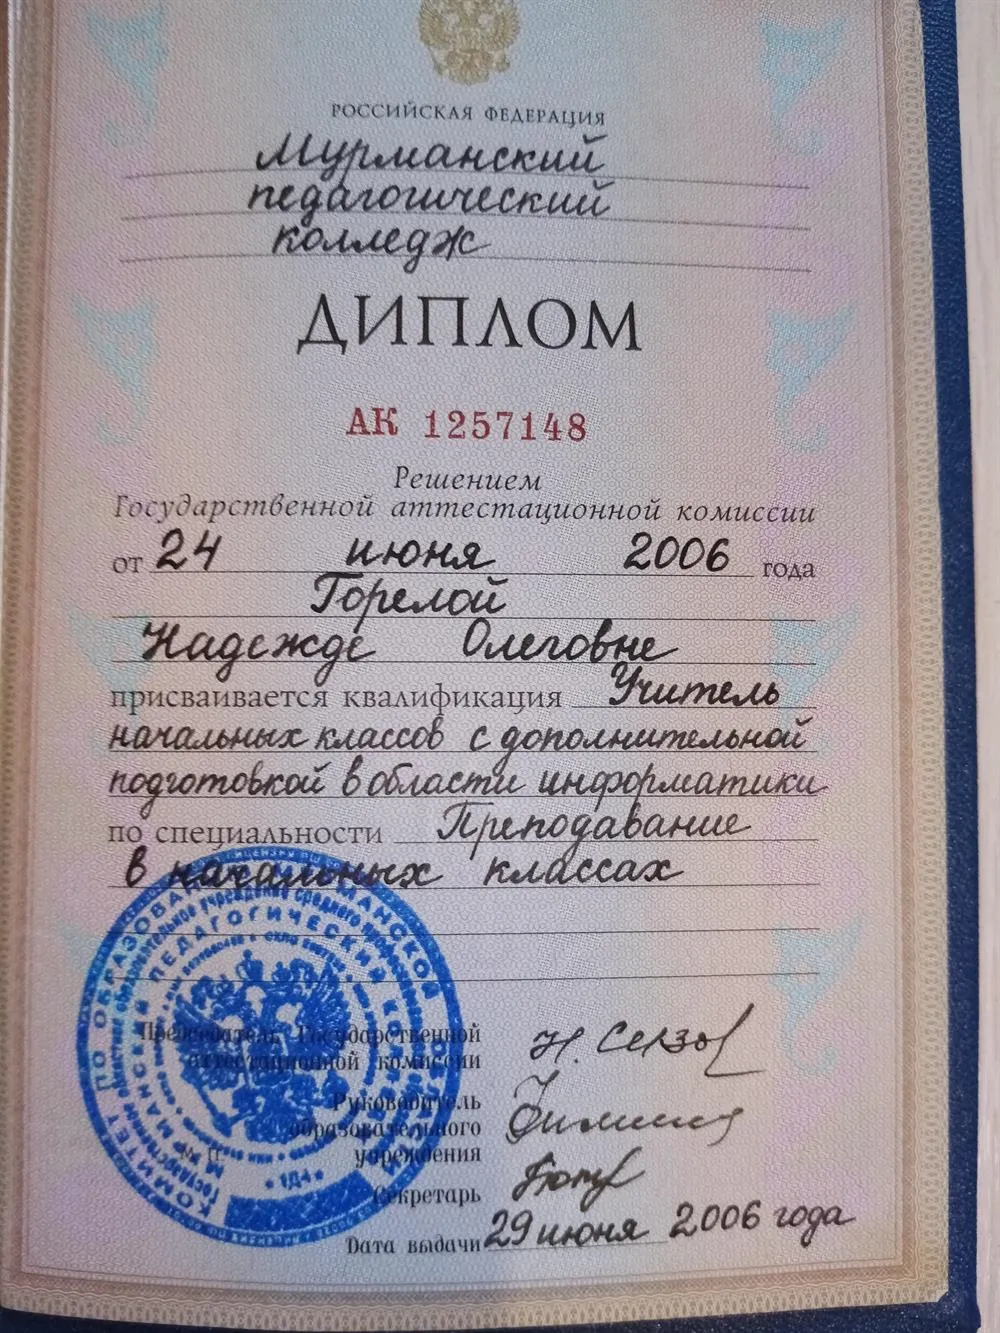 РОССИЙСКАЯ ФЕДЕРАЦИЯ
Мурманский
педагогический
колледж
ДИПЛОМ
АК 1257148
Решением
Государственной аттестационной комиссии
от 24 июня 2006 года
Горелой
Надежде Олеговне
присваивается квалификация Учитель
начальных классов с дополнительной
подготовкой в области информатики
по специальности Преподавание
в начальных классах
Председатель Государственной
аттестационной комиссии
Руководитель
образовательного
учреждения
М. П.
Секретарь
Дата выдачи 29 июня 2006 года
КОМИТЕТ ПО ОБРАЗОВАНИЮ МУРМАНСКОЙ
ПЕДАГОГИЧЕСКИЙ КОЛЛЕДЖ